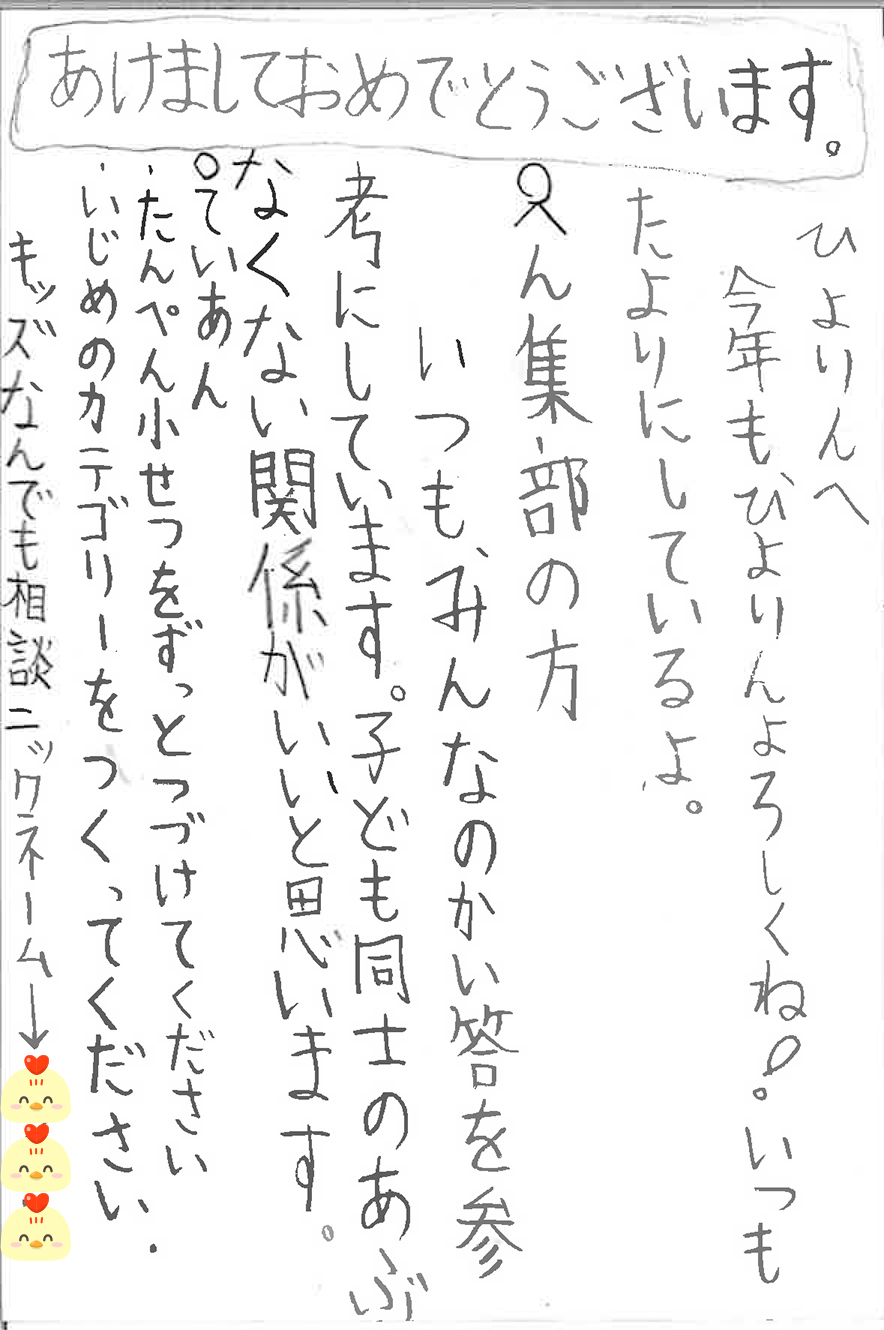 あけましておめでとうございます。
ひよりんへ
今年もひよりんよろしくね!いつも
たよりにしているよ。
へん集部の方
いつも、みんなのかい答を参
考にしています。子ども同士のあぶ
なくない関係がいいと思います。
°ていあん
・たんぺん小せつをずっとつづけてください
・いじめのカテゴリーをつくってください.
キッズなんでも相談ニックネーム→